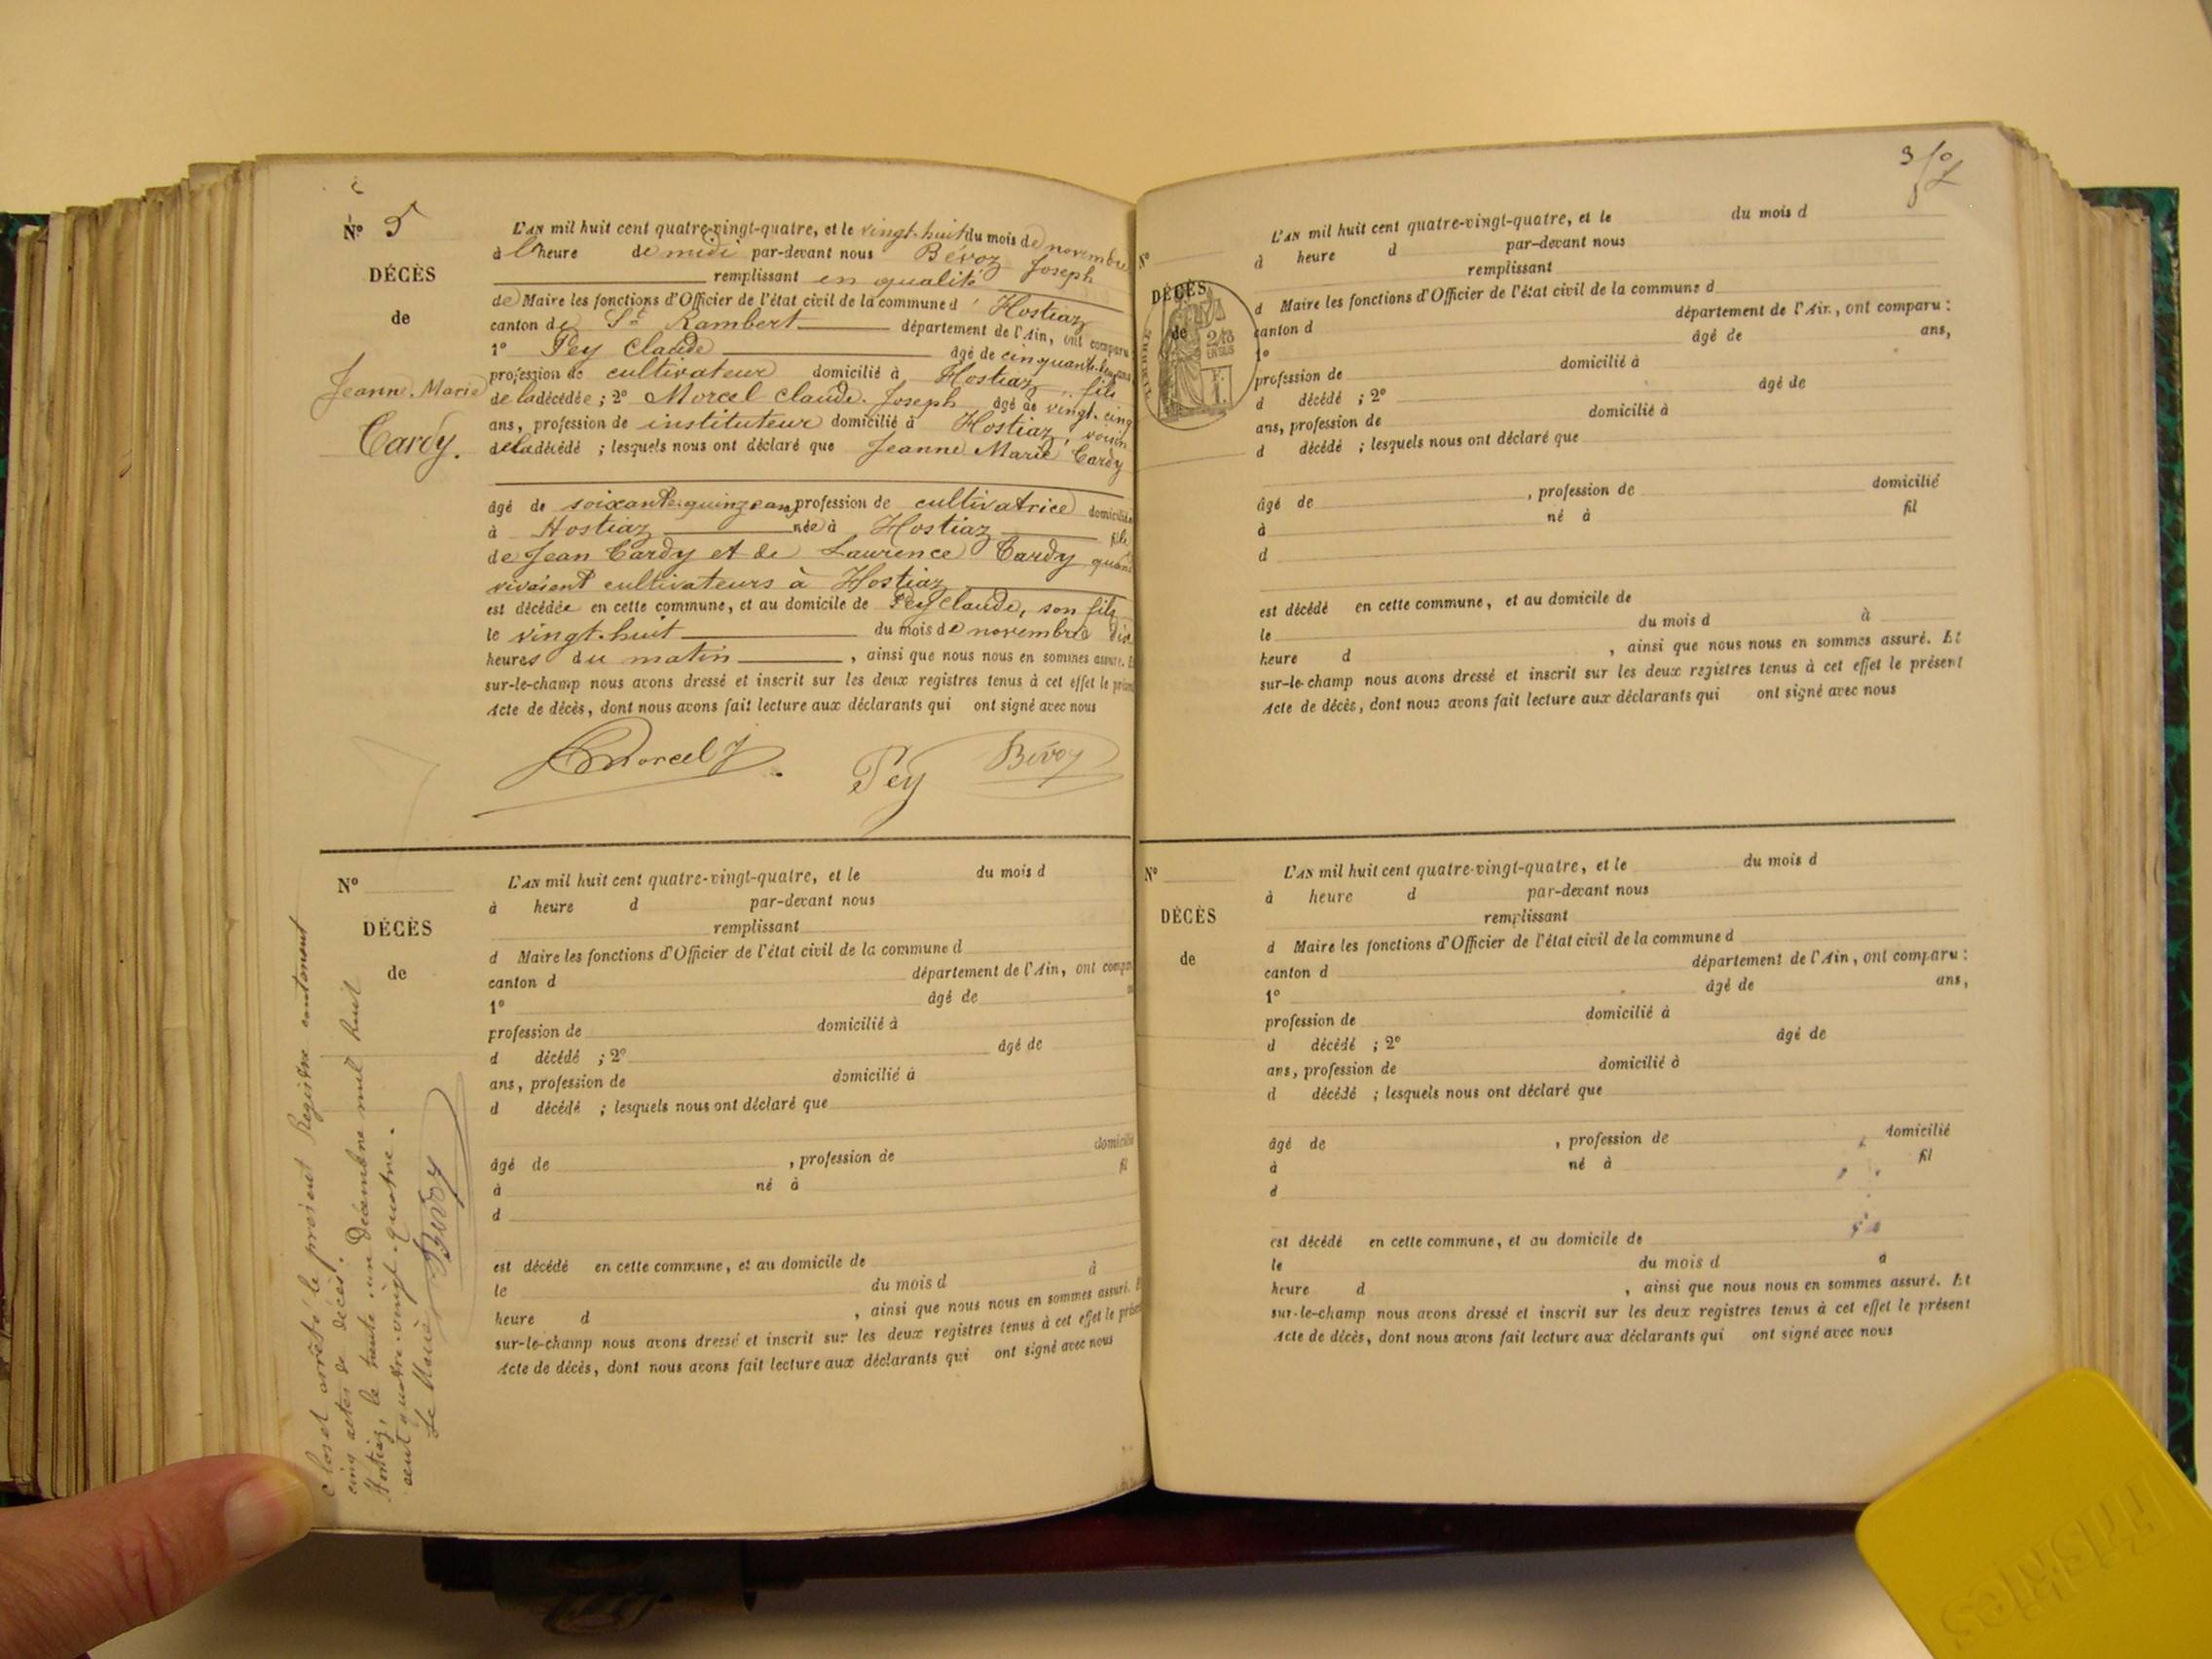 Nº 5
DÉCÈS
de
Jeanne Marie
Cardy.
L'AN mil huit cent quatre-vingt-quatre, et le vingt-huit du mois de novembre
à l'heure de midi par-devant nous Bévoz Joseph
remplissant en qualité
de Maire les fonctions d'Officier de l'état civil de la commune d'Hostiaz
canton de St Rambert département de l'Ain, ont comparu
1º Pey Claude âgé de cinquante
profession de cultivateur domicilié à Hostiaz, fils
de la décédée ; 2º Morcel Claude Joseph âgé de vingt-cinq
ans, profession de instituteur domicilié à Hostiaz, voisin
de la décédé ; lesquels nous ont déclaré que Jeanne Marie Cardy
âgé de soixante-quinze ans, profession de cultivatrice domiciliée
à Hostiaz née à Hostiaz fille
de Jean Cardy et de Laurence Cardy quand
vivaient cultivateurs à Hostiaz
est décédée en cette commune, et au domicile de Pey Claude, son fils
le vingt-huit du mois de novembre dix
heures du matin, ainsi que nous nous en sommes assuré. Et
sur-le-champ nous avons dressé et inscrit sur les deux registres tenus à cet effet le présent
Acte de décès, dont nous avons fait lecture aux déclarants qui ont signé avec nous
Morcel J
Pey
Bévoz
Nº
DÉCÈS
de
L'AN mil huit cent quatre-vingt-quatre, et le du mois d
à heure d par-devant nous
remplissant
d Maire les fonctions d'Officier de l'état civil de la commune d
canton d département de l'Ain, ont comparu
1º âgé de
profession de domicilié à
d décédé ; 2º âgé de
ans, profession de domicilié à
d décédé ; lesquels nous ont déclaré que
âgé de , profession de domicilié
à né à fil
d
est décédé en cette commune, et au domicile de
le du mois d à
heure d , ainsi que nous nous en sommes assuré. E
sur-le-champ nous avons dressé et inscrit sur les deux registres tenus à cet effet le présent
Acte de décès, dont nous avons fait lecture aux déclarants qui ont signé avec nous
Clos et arrêté le présent Registre contenant
cinq actes de décès.
Hostiaz, le trente un Décembre mil huit
cent quatre-vingt-quatre.
Le Maire
Bévoz
Nº
DÉCÈS
de
2/10
EN SUS
L'AN mil huit cent quatre-vingt-quatre, et le du mois d
à heure d par-devant nous
remplissant
d Maire les fonctions d'Officier de l'état civil de la commune d
canton d département de l'Ain, ont comparu :
1º âgé de ans,
profession de domicilié à
d décédé ; 2º âgé de
ans, profession de domicilié à
d décédé ; lesquels nous ont déclaré que
âgé de , profession de domicilié
à né à fil
d
est décédé en cette commune, et au domicile de
le du mois d à
heure d , ainsi que nous nous en sommes assuré. Et
sur-le-champ nous avons dressé et inscrit sur les deux registres tenus à cet effet le présent
Acte de décès, dont nous avons fait lecture aux déclarants qui ont signé avec nous
Nº
DÉCÈS
de
L'AN mil huit cent quatre-vingt-quatre, et le du mois d
à heure d par-devant nous
remplissant
d Maire les fonctions d'Officier de l'état civil de la commune d
canton d département de l'Ain, ont comparu :
1º âgé de ans,
profession de domicilié à
d décédé ; 2º âgé de
ans, profession de domicilié à
d décédé ; lesquels nous ont déclaré que
âgé de , profession de domicilié
à né à fil
d
est décédé en cette commune, et au domicile de
le du mois d à
heure d , ainsi que nous nous en sommes assuré. Et
sur-le-champ nous avons dressé et inscrit sur les deux registres tenus à cet effet le présent
Acte de décès, dont nous avons fait lecture aux déclarants qui ont signé avec nous
Friskies